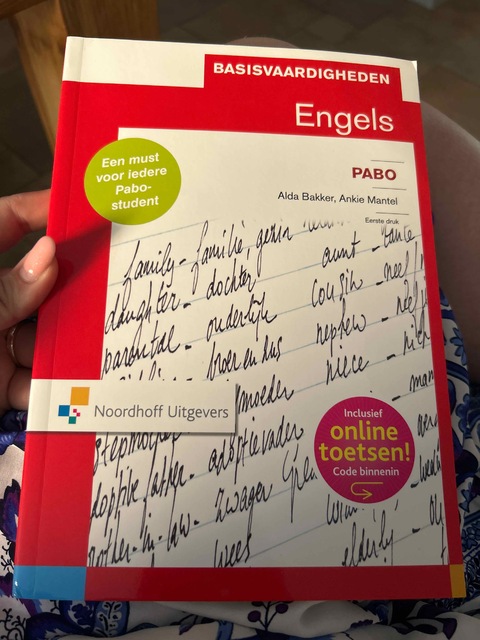 BASISVAARDIGHEDEN
Engels
Een must
voor iedere
Pabo-
student
PABO
Alda Bakker, Ankie Mantel
Eerste druk
family - familie, gezin
aunt - tante
daughter - dochter
cousin - neef/
parental - ouderlijk
nephew - neef/
broer en zus
niece - nich
moeder
Noordhoff Uitgevers
adoptievader
Inclusief
online
toetsen!
Code binnenin
in-law - zwager
wees
elderly -